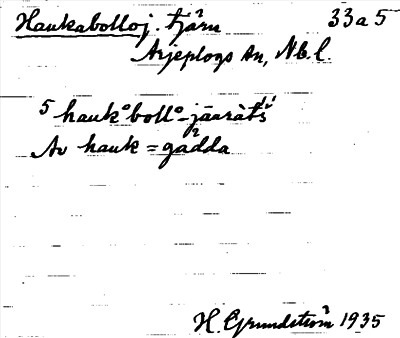 Haukabolloj. tjärn 33a5
Arjeplogs sn, Nb. l.
5 hauk° boll°-jaaràt́š
Av hauk = gädda
H. Grundström 1935